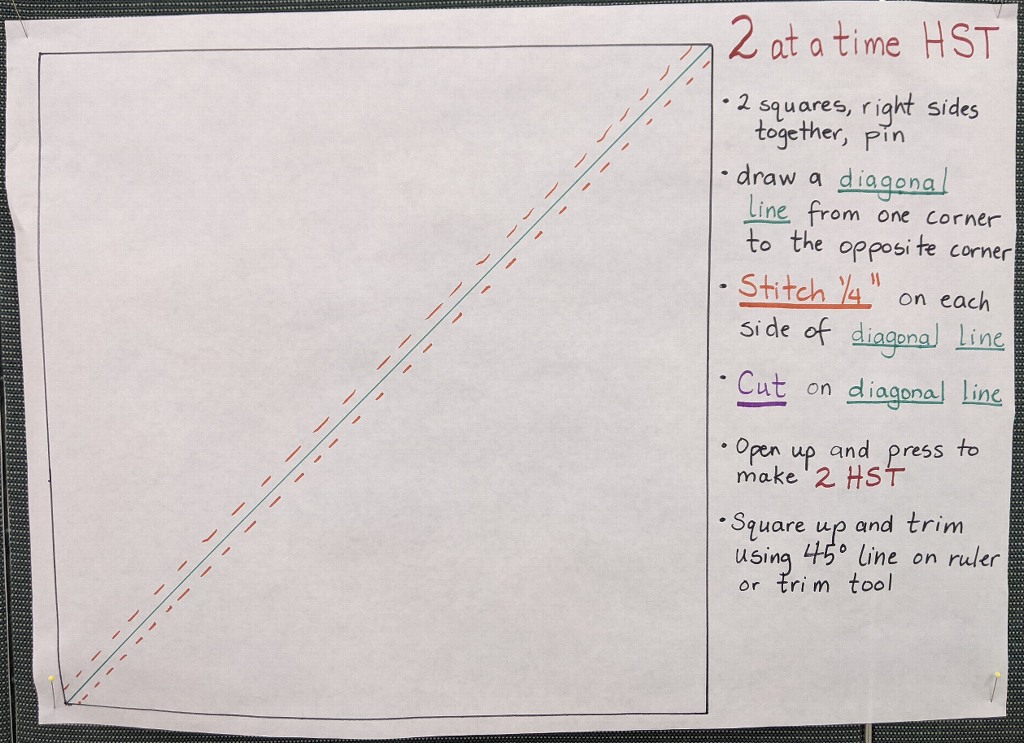 2 at a time HST
• 2 squares, right sides
together, pin
• draw a diagonal
line from one corner
to the opposite corner
• Stitch 1/4" on each
side of diagonal line
• Cut on diagonal line
• Open up and press to
make 2 HST
• Square up and trim
using 45° line on ruler
or trim tool